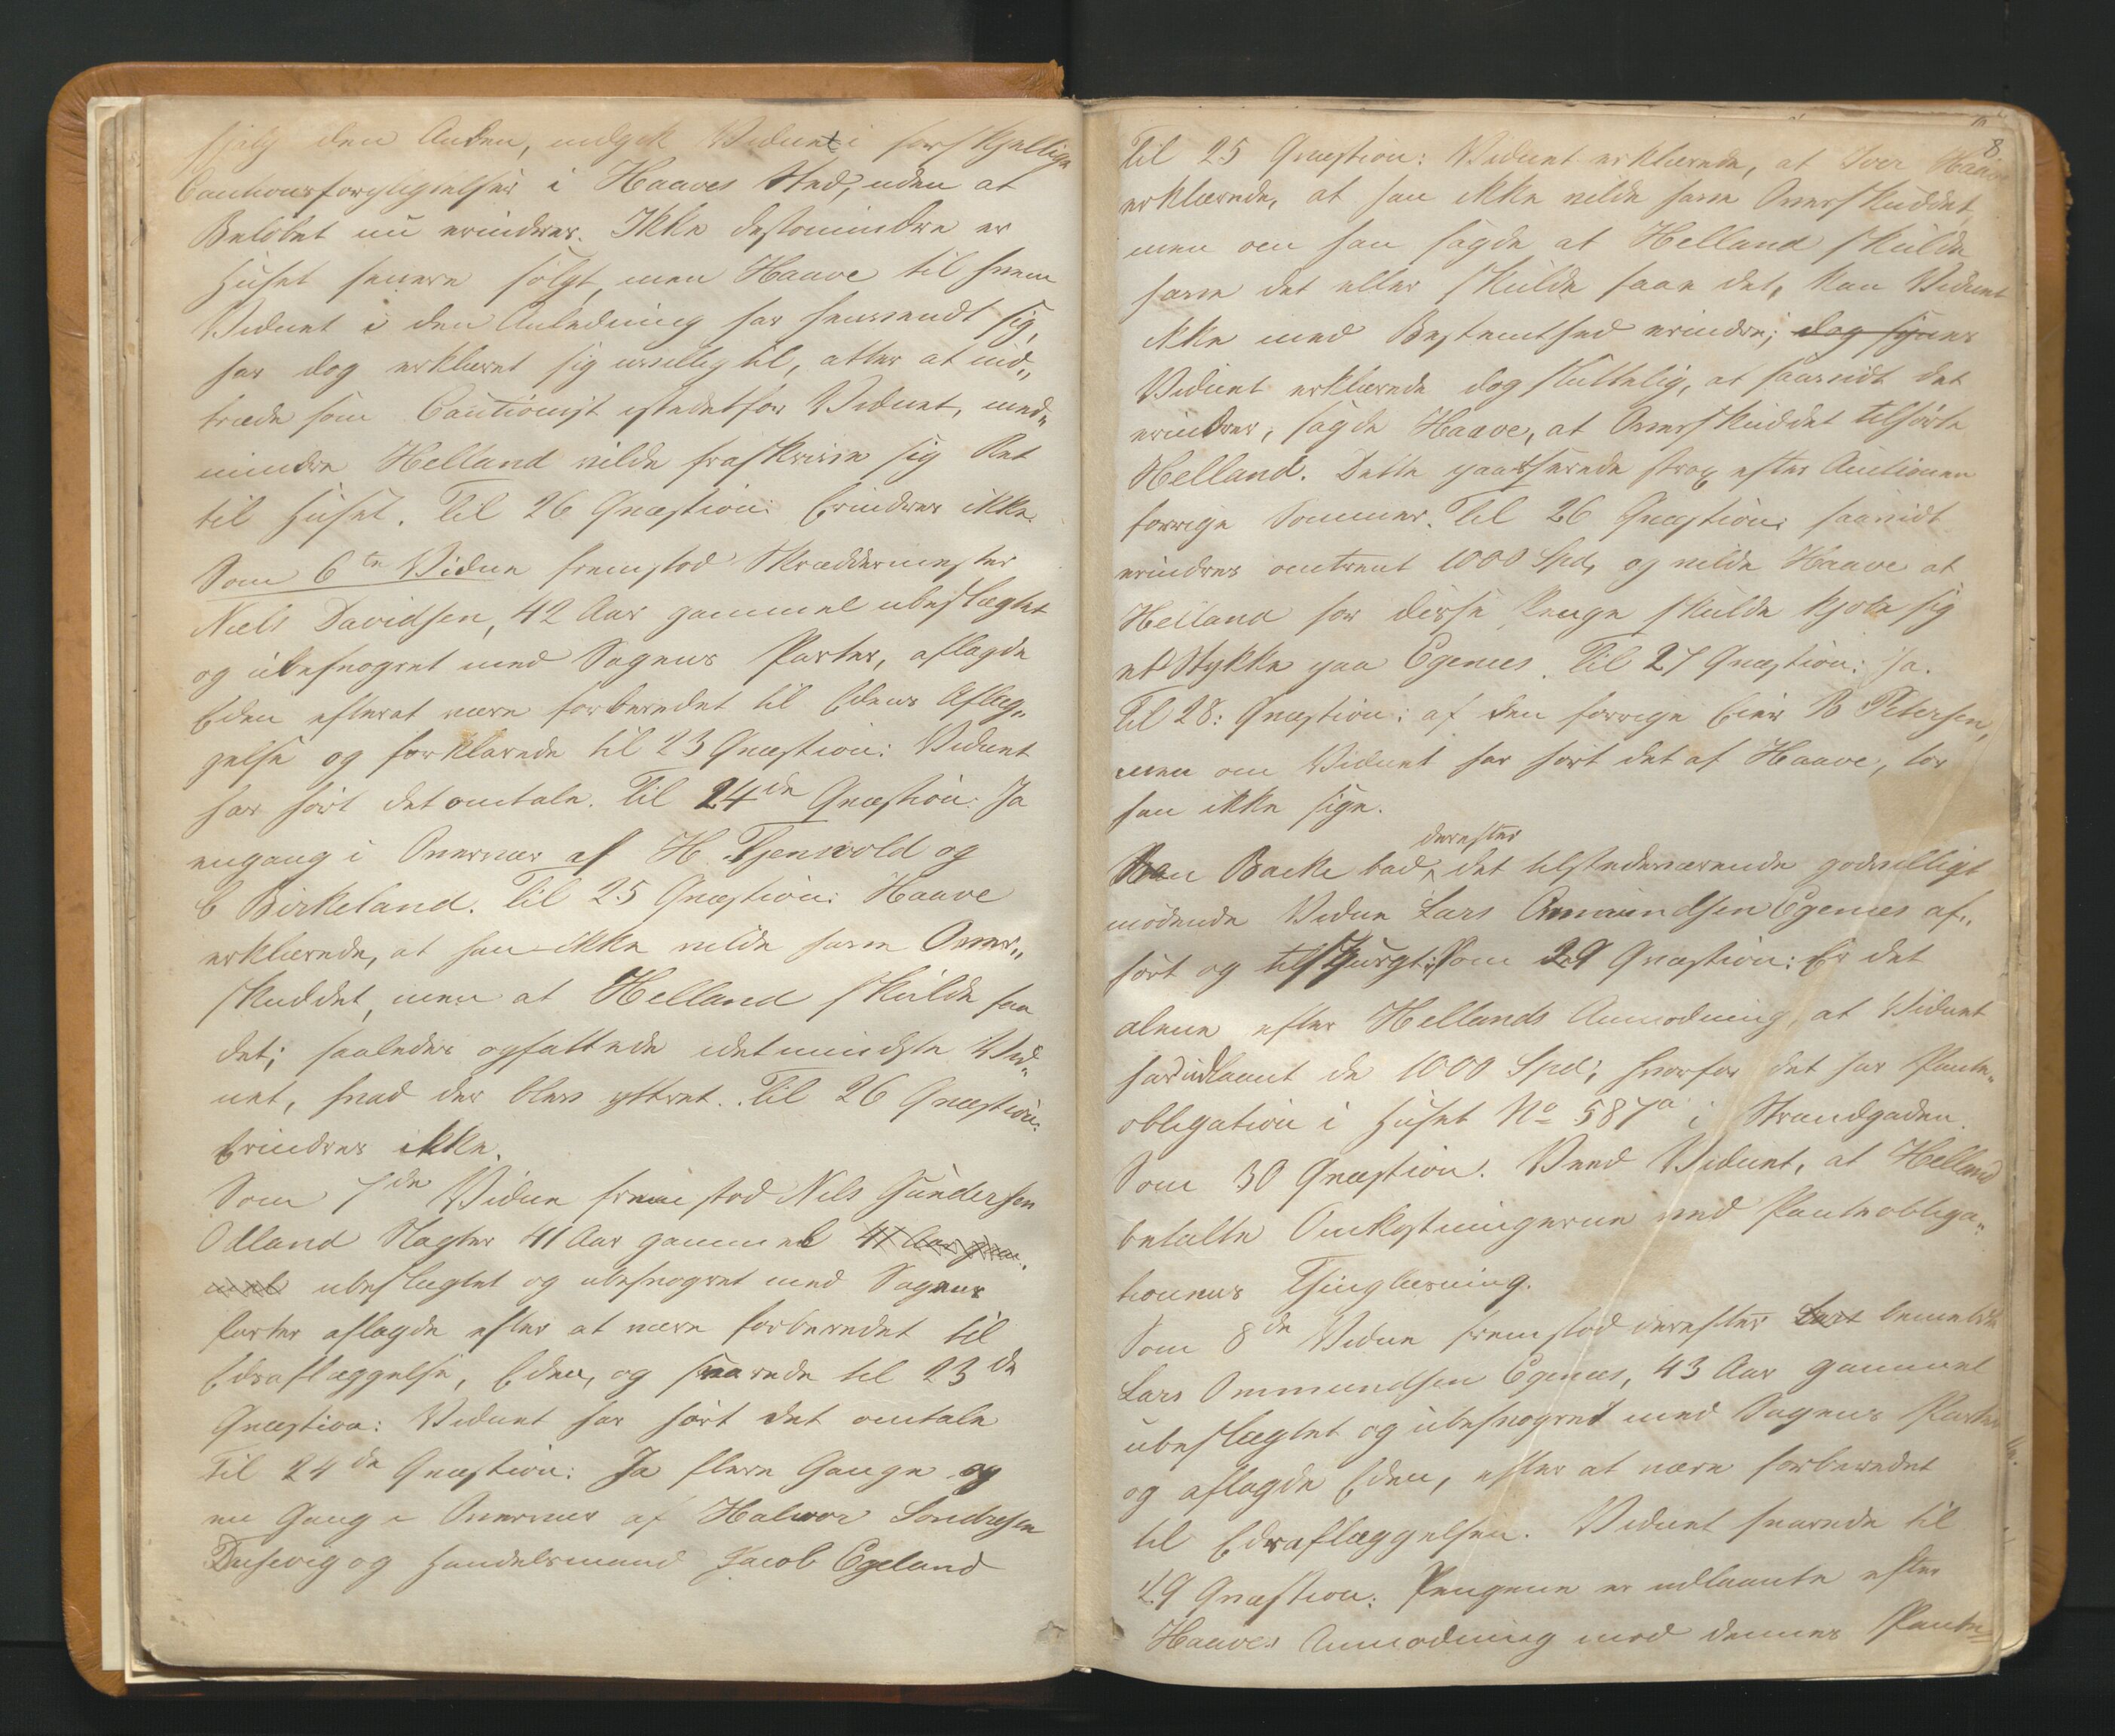 hjalp den Anden, indgik Vidnet i forskjellige
Cautionsforpligtelser i Haaves Sted, uden at
Beløbet nu erindres. Ikke destomindre er
Huset senere solgt, men Haave til hvem
Vidnet i den Anledning har henvendt sig,
har dog erklæret sig uvillig til, atter at ind„
træde som Cautionist istedetfor Vidnet, med„
mindre Helland vilde fraskrive sig Ret
til Huset. Til 26 Qvæstion: Erindres ikke.
Som 6te Vidne fremstod Skræddermester
Niels Davidsen, 42 Aar gammel ubeslægtet
og ubesvogret med Sagens Parter, aflagde
Eden efterat være forberedet til Edens Aflæg„
gelse og forklarede til 23 Qvæstion: Vidnet
har hørt det omtale. Til 24de Qvæstion: Ja
engang i Overvær af H. Tjensvold og
C Birkeland. Til 25 Qvæstion: Haave
erklærede, at han ikke vilde have Over„
skuddet, men at Helland skulde faa
det; saaledes opfattede idetmindste Vid„
net, hvad der blev yttret. Til 26 Qvæstion:
Erindres ikke.
Som 7de Vidne fremstod Nils Gundersen
Odland Slagter 41 Aar gammel 41 Aar gam„
mel ubeslægtet og ubesvogret med Sagens
Parter aflagde efter at være forberedet til
Edsaflæggelse, Eden, og svarede til 23de
Qvæstion: Vidnet har hørt det omtale
Til 24de Qvæstion: Ja flere Gange og
en Gang i Overvær af Halvor Sondresen
Dusevig og Handelsmand Jacob Egeland
8
Til 25 Qvæstion: Vidnet erklærede, at Iver Haave
erklærede, at han ikke vilde have Overskuddet,
men om han sagde at Helland skulde
have det eller skulde faae det, kan Vidnet
ikke med Bestemthed erindre; dog synes
Vidnet erklærede dog sluttelig, at saavidt det
erindrer, sagde Haave, at Overskuddet tilhørte
Helland. Dette passerede strax efter Auctionen
forrige Sommer. Til 26 Qvæstion: saavidt
erindres omtrent 1000 Spd, og vilde Haave at
Helland for disse Penge skulde kjøbe sig
et Stykke paa Egenæs. Til 27 Qvæstion: Ja.
Til 28: Qvæstion: af den forrige Eier B Petersen,
men om Vidnet har hørt det af Haave, tør
han ikke sige.
derefter
Backe bad det tilstedeværende godvilligt
mødende Vidne Lars Ommundsen Egenæs af„
hørt og tilspurgt: Som 29 Qvæstion: Er det
alene efter Hellands Anmodning, at Vidnet
har udlaant de 1000 Spd, hvorfor det har Pante„
obligation i Huset No 587a i Strandgaden.
Som 30 Qvæstion. Veed Vidnet, at Helland
betalte Omkostningerne ved Panteobliga„
tionens Thinglæsning.
Som 8de Vidne fremstod derefter Lars bemeldte
Lars Ommundsen Egenæs, 43 Aar gammel
ubeslægtet og ubesvogret med Sagens Parter
og aflagde Eden, efter at være forberedet
til Edsaflæggelsen. Vidnet svarede til
29 Qvæstion: Pengene er udlaante efter
Haaves Anmodning mod dennes Pante„